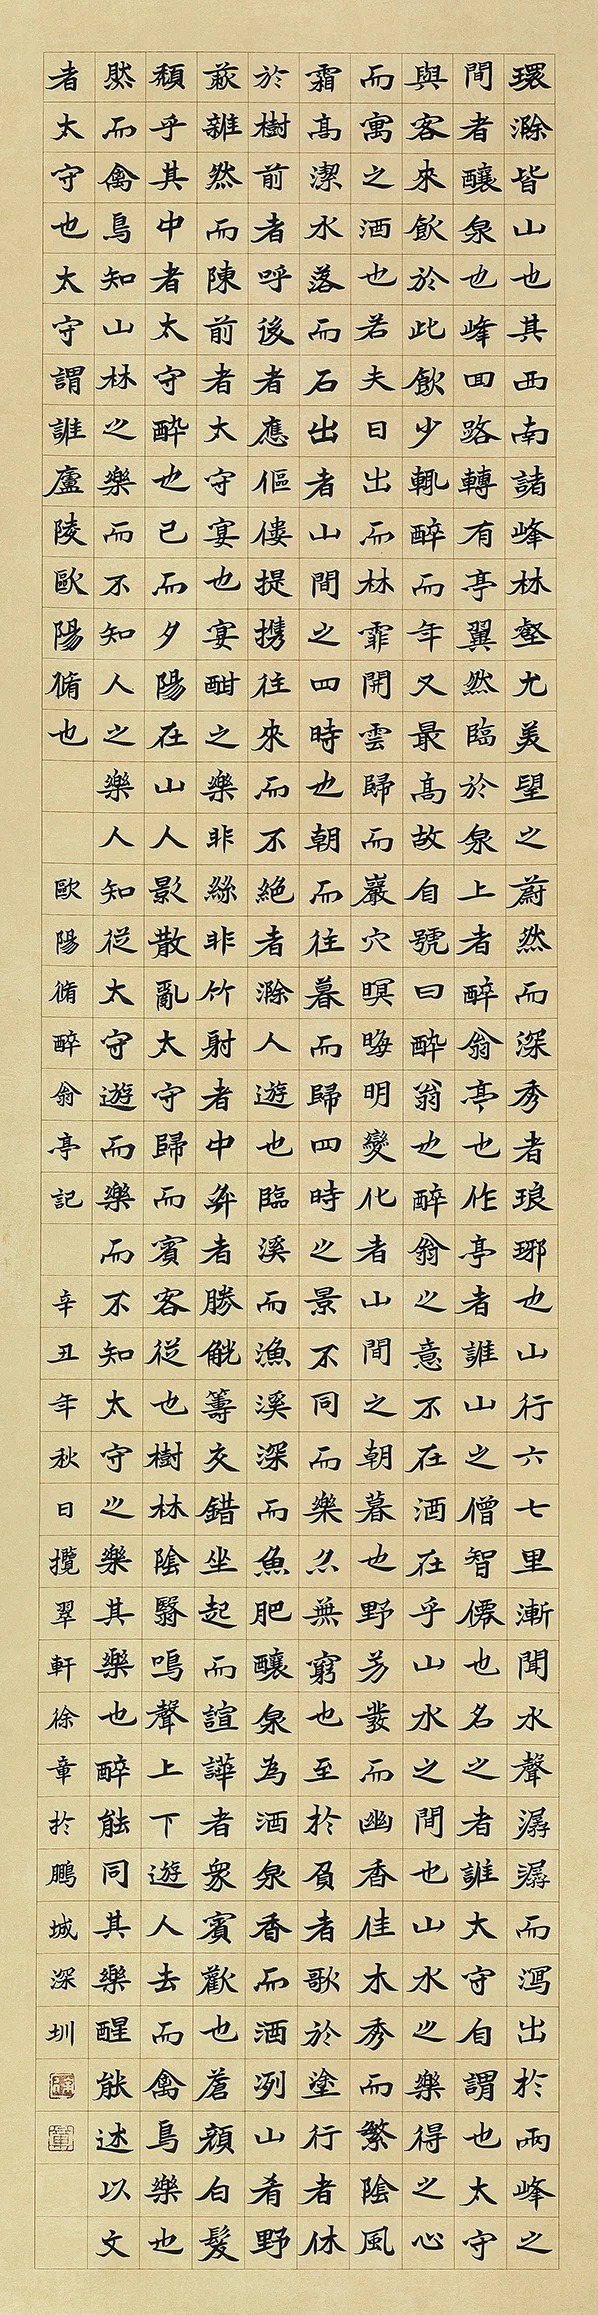 環滁皆山也其西南諸峰林壑尤美望之蔚然而深秀者琅琊也山行六七里漸聞水聲潺潺而瀉出於兩峰之
間者釀泉也峰回路轉有亭翼然臨於泉上者醉翁亭也作亭者誰山之僧智僊也名之者誰太守自謂也太守
與客來飲於此飲少輒醉而年又最高故自號曰醉翁也醉翁之意不在酒在乎山水之間也山水之樂得之心
而寓之酒也若夫日出而林霏開雲歸而巖穴暝晦明變化者山間之朝暮也野芳發而幽香佳木秀而繁陰風
霜高潔水落而石出者山間之四時也朝而往暮而歸四時之景不同而樂亦無窮也至於負者歌於塗行者休
於樹前者呼後者應傴僂提携往來而不絕者滁人遊也臨溪而漁溪深而魚肥釀泉為酒泉香而酒冽山肴野
蔌雜然而陳前者太守宴也宴酣之樂非絲非竹射者中弈者勝觥籌交錯坐起而諠譁者眾賓歡也蒼顏白髮
頹乎其中者太守醉也已而夕陽在山人影散亂太守歸而賓客從也樹林陰翳鳴聲上下遊人去而禽鳥樂也
然而禽鳥知山林之樂而不知人之樂人知從太守遊而樂而不知太守之樂其樂也醉能同其樂醒能述以文
者太守也太守謂誰廬陵歐陽脩也 歐陽脩醉翁亭記 辛丑年秋日攬翠軒徐章於鵬城深圳